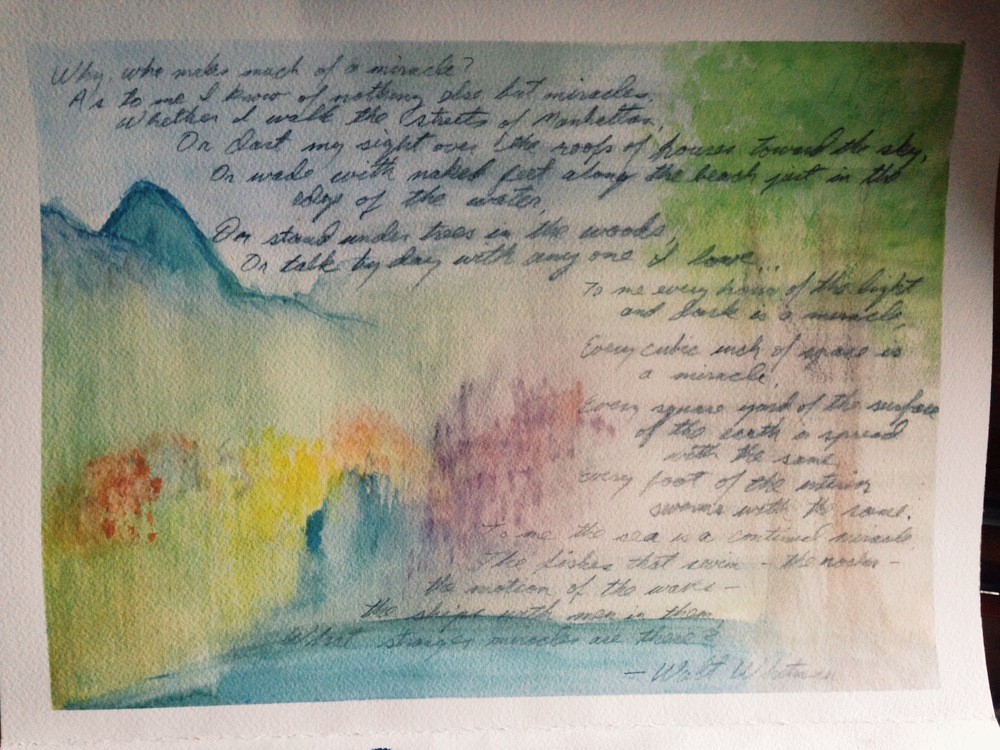 Why, who makes much of a miracle?
As to me I know of nothing else but miracles,
Whether I walk the streets of Manhattan,
Or dart my sight over the roofs of houses toward the sky,
Or wade with naked feet along the beach just in the
edge of the water,
Or stand under trees in the woods,
Or talk by day with any one I love...
To me every hour of the light
and dark is a miracle,
Every cubic inch of space is
a miracle,
Every square yard of the surface
of the earth is spread
with the same,
Every foot of the interior
swarms with the same.
To me the sea is a continual miracle,
The fishes that swim - the rocks -
the motion of the waves -
the ships with men in them,
What stranger miracles are there?
- Walt Whitman